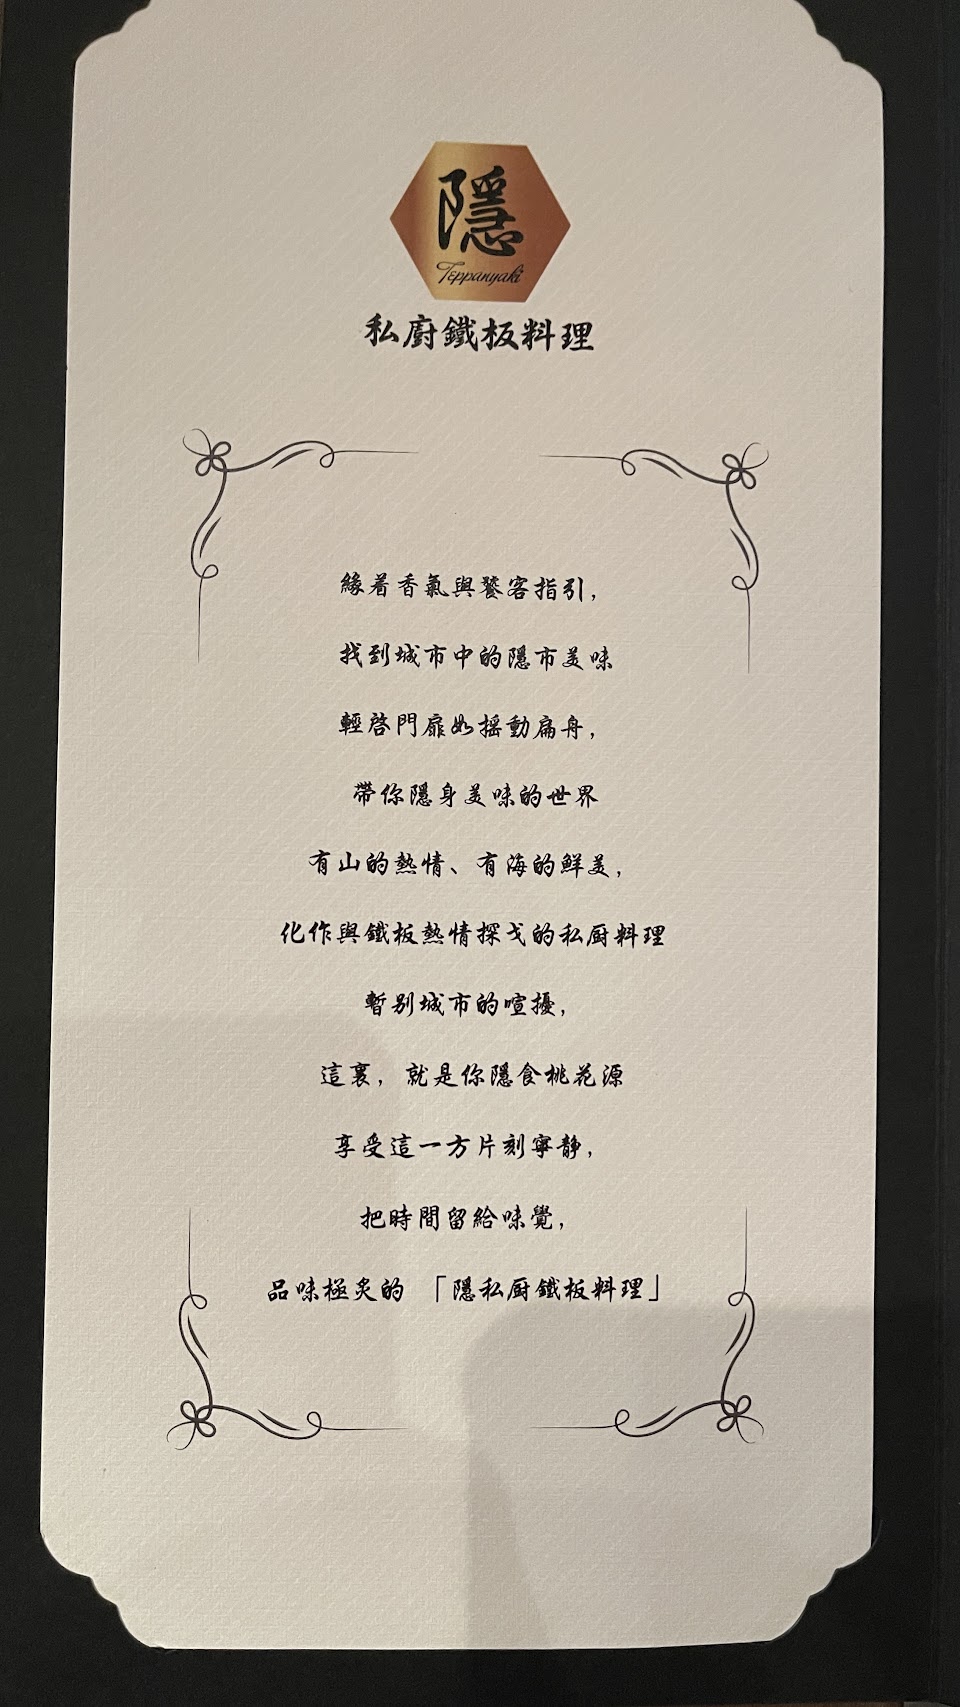 隱
Teppanyaki
私廚鐵板料理
緣着香氣與饕客指引，
找到城市中的隱市美味
輕啓門扉如摇動扁舟，
帶你隱身美味的世界
有山的熱情、有海的鮮美，
化作與鐵板熱情探戈的私厨料理
暫别城市的喧擾，
這裏，就是你隱食桃花源
享受這一方片刻寧静，
把時間留給味覺，
品味極炙的「隱私厨鐵板料理」